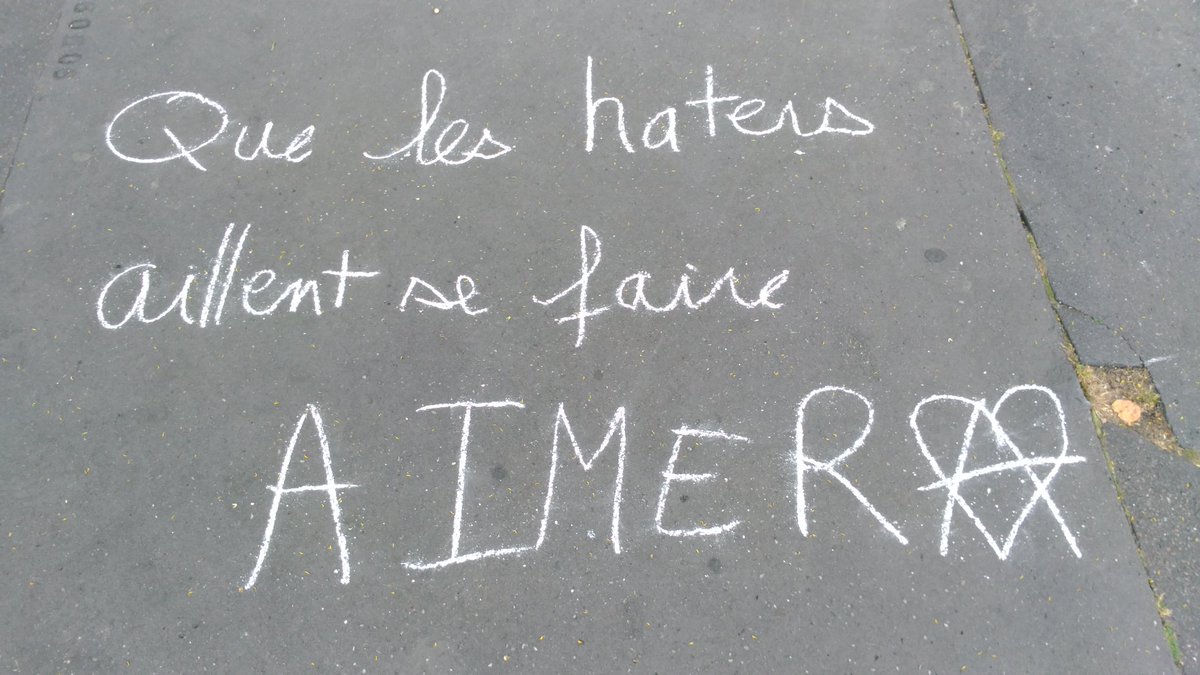 Que les haters
aillent se faire
AIMER